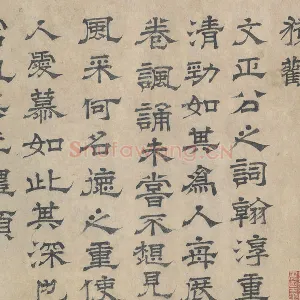 觀
文正公之詞翰淳重
清勁如其爲人每展
卷諷誦未嘗不想見
風采何名德之重使
人慕如此其深